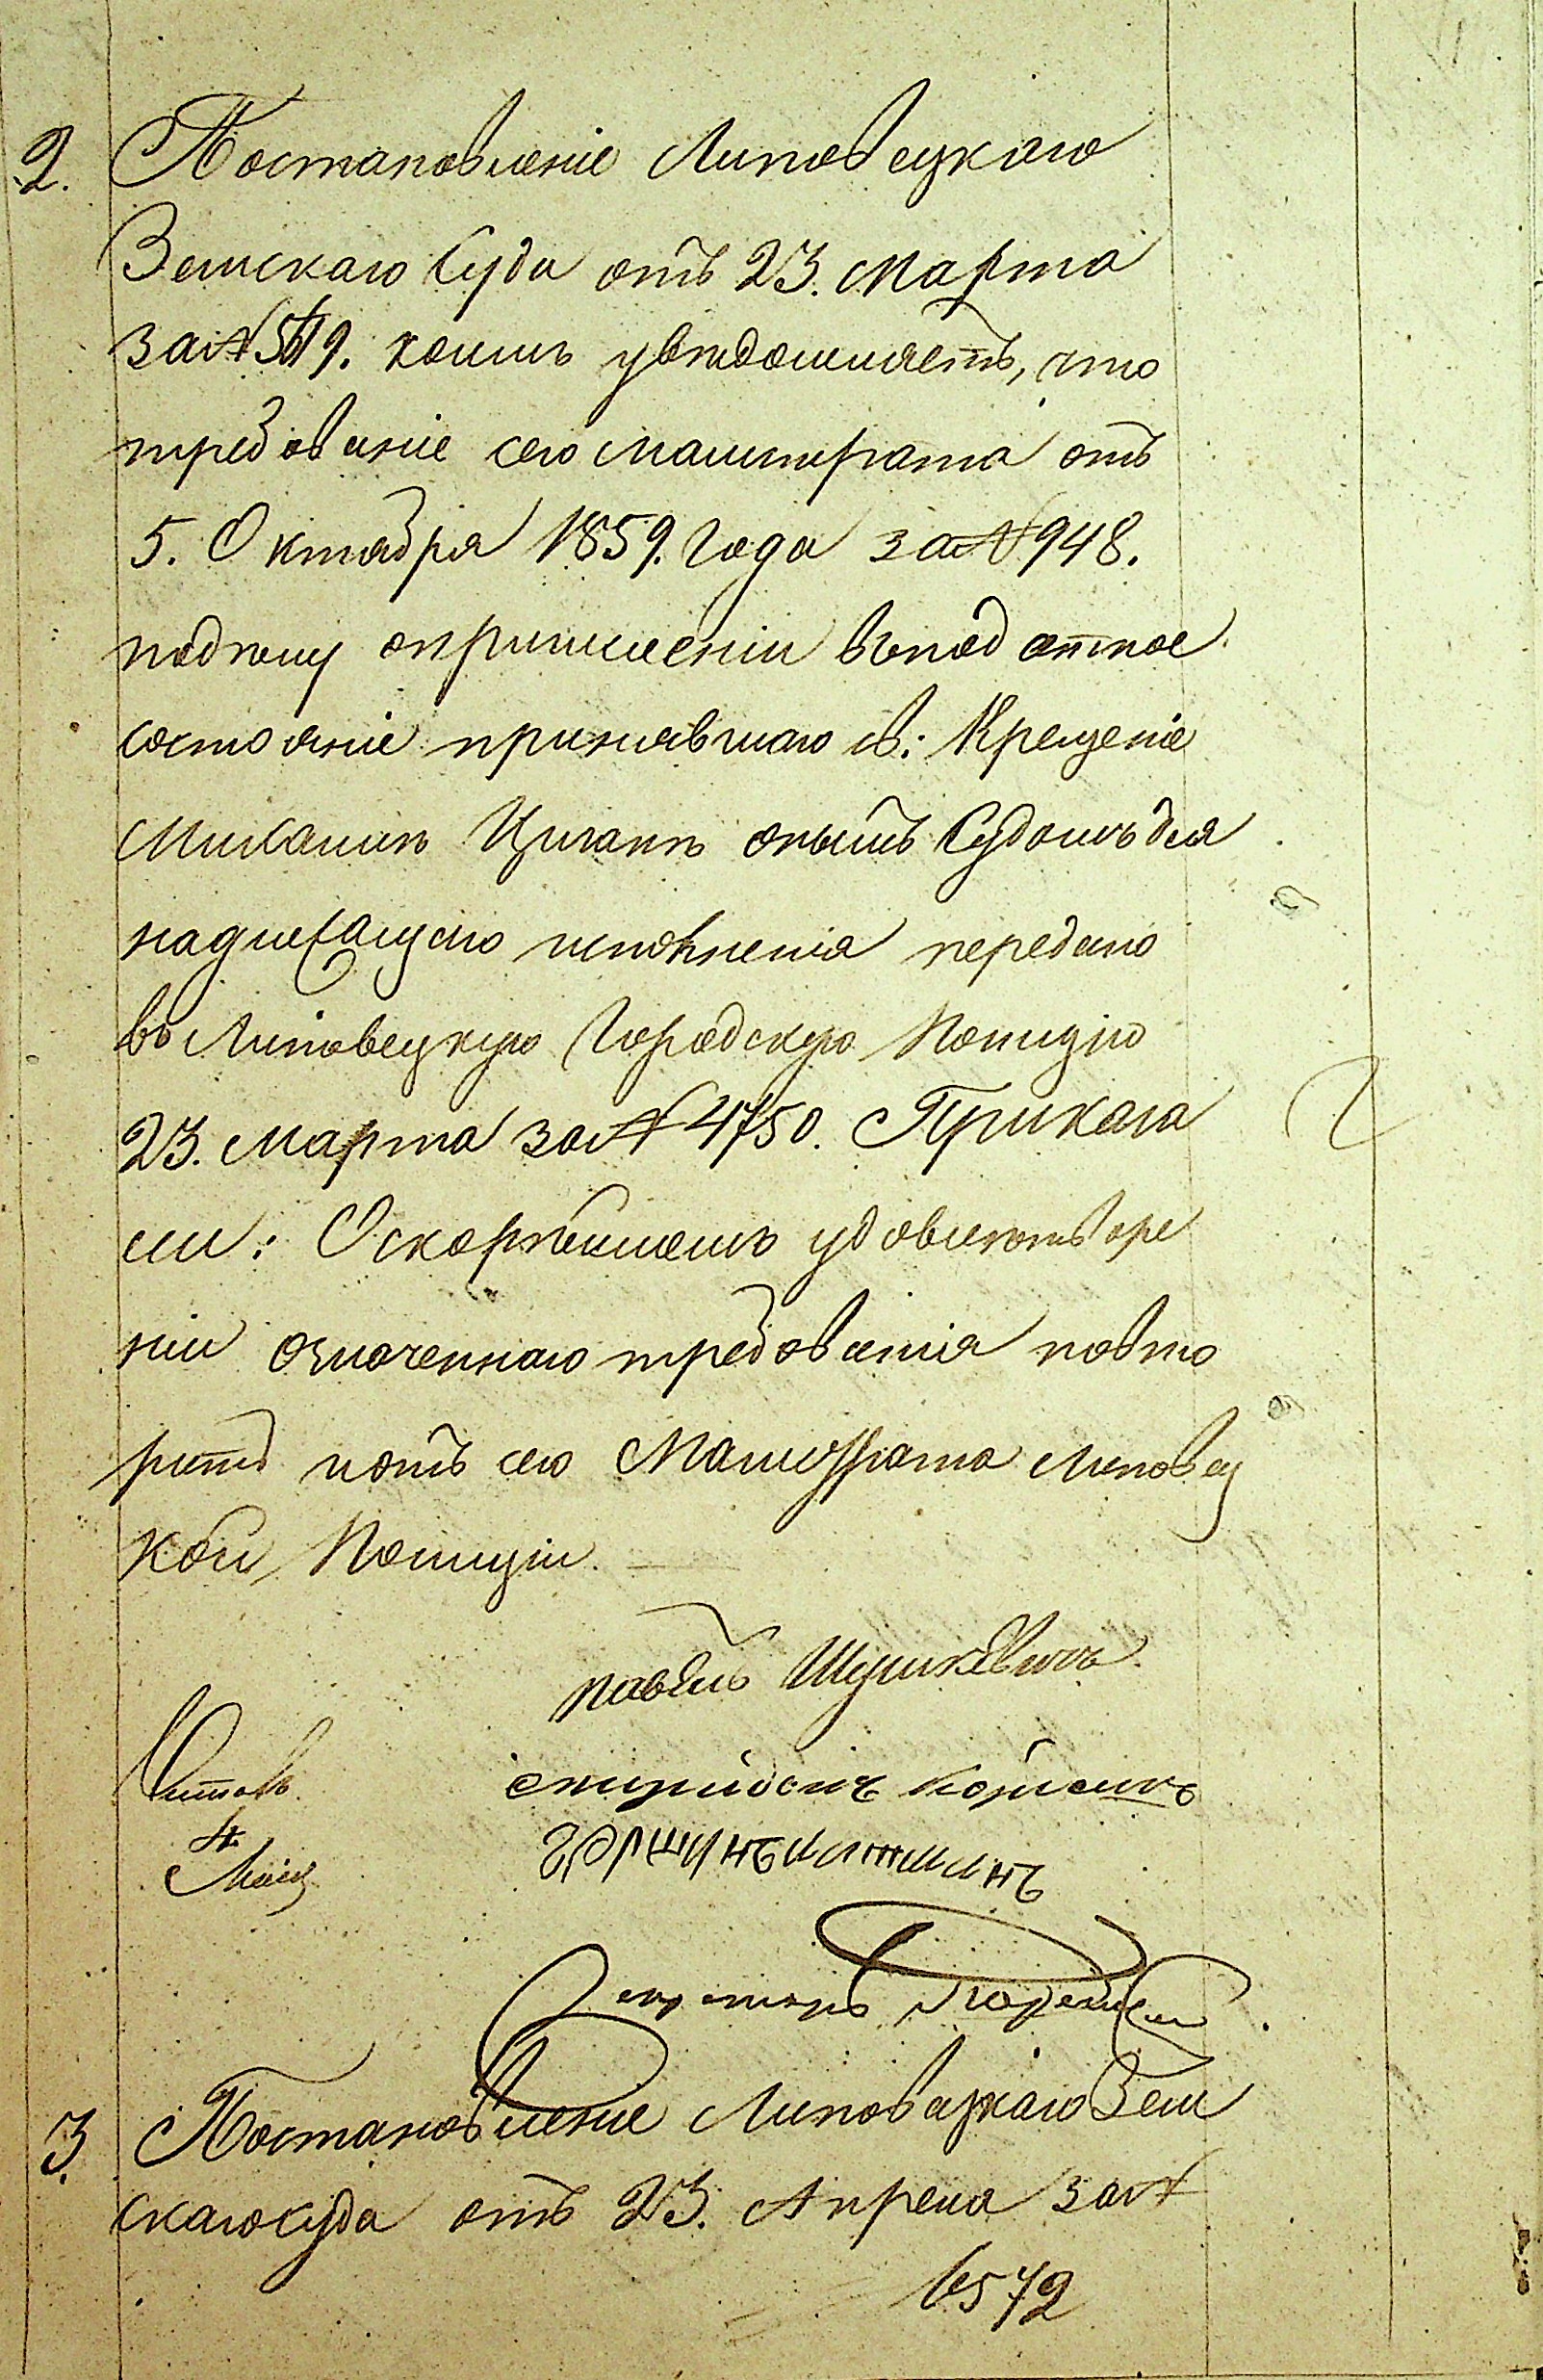 2. Постановленіе Липовецкаго
Земскаго Суда отъ 23. Марта
за № коимъ увѣдомляетъ, что
требованіе сего магистрата отъ
5. Октября 1859. года за № 948.
опричисленіи въподатное
состояніе принявшаго св: Крещеніе
онымъ Судомъ для
надлежащаго исполненія передано
въ Липовецкую Городскую Полицію
23. Марта за № 4750. Приказа
ли: Оскорѣйшемъ удовлетворе
ніи означеннаго требованія повто
рить исего Магистрата Липовец
кой Полиціи.
Павелъ Шушкевичъ
Читалъ
Секретарь
3. Постановленіе Липовецкаго Зем
скаго суда отъ 23. Апреля за №
6572